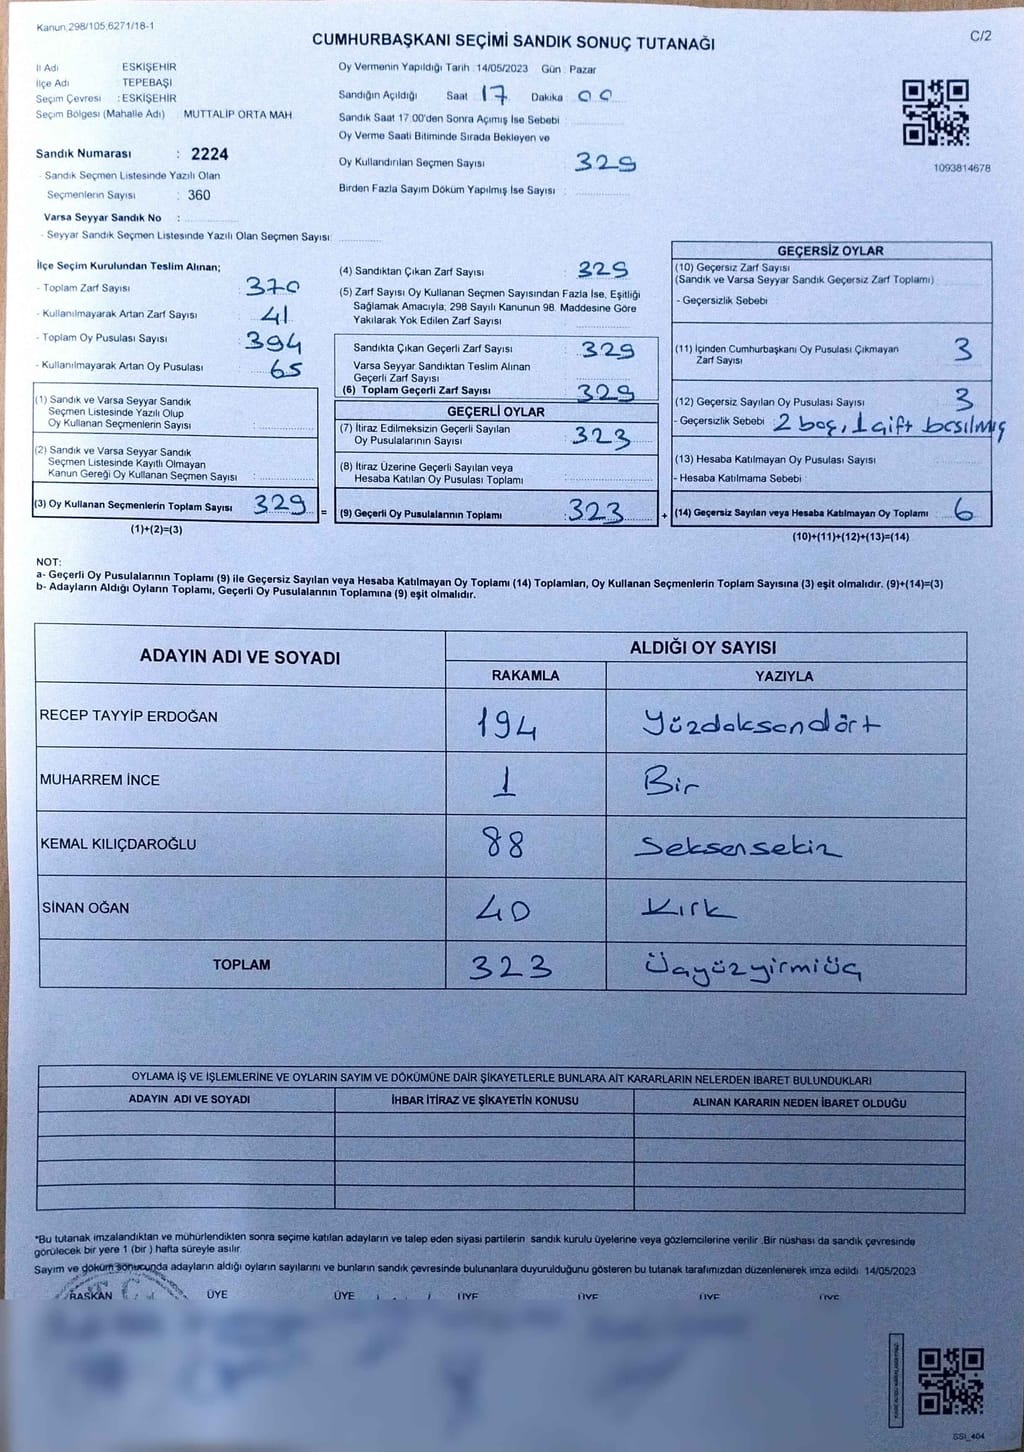 Kanun 298/105,6271/18-1
CUMHURBAŞKANI SEÇİMİ SANDIK SONUÇ TUTANAĞI
C/2
İl Adı ESKİŞEHİR
İlçe Adı TEPEBAŞI
Seçim Çevresi : ESKİŞEHİR
Seçim Bölgesi (Mahalle Adı) MUTTALIP ORTA MAH
Oy Vermenin Yapıldığı Tarih 14/05/2023 Gün Pazar
Sandığın Açıldığı Saat 17 Dakika 00
Sandık Saat 17 00'den Sonra Açımış İse Sebebi
Oy Verme Saati Bitiminde Sırada Bekleyen ve
Oy Kullandırılan Seçmen Sayısı : 329
Birden Fazla Sayım Döküm Yapılmış İse Sayısı :
1093814678
Sandık Numarası : 2224
- Sandık Seçmen Listesinde Yazılı Olan
Seçmenlerin Sayısı : 360
Varsa Seyyar Sandık No :
- Seyyar Sandık Seçmen Listesinde Yazılı Olan Seçmen Sayısı:
İlçe Seçim Kurulundan Teslim Alınan;
- Toplam Zarf Sayısı : 370
- Kullanılmayarak Artan Zarf Sayısı : 41
- Toplam Oy Pusulası Sayısı : 394
- Kullanılmayarak Artan Oy Pusulası : 65
(1) Sandık ve Varsa Seyyar Sandık
Seçmen Listesinde Yazılı Olup
Oy Kullanan Seçmenlerin Sayısı :
(2) Sandık ve Varsa Seyyar Sandık
Seçmen Listesinde Kayıtlı Olmayan
Kanun Gereği Oy Kullanan Seçmen Sayısı :
(3) Oy Kullanan Seçmenlerin Toplam Sayısı 329 =
(1)+(2)=(3)
(4) Sandıktan Çıkan Zarf Sayısı : 329
(5) Zarf Sayısı Oy Kullanan Seçmen Sayısından Fazla İse, Eşitliği
Sağlamak Amacıyla; 298 Sayılı Kanunun 98. Maddesine Göre
Yakılarak Yok Edilen Zarf Sayısı
Sandıkta Çıkan Geçerli Zarf Sayısı : 329
Varsa Seyyar Sandıktan Teslim Alınan
Geçerli Zarf Sayısı
(6) Toplam Geçerli Zarf Sayısı 329
GEÇERLİ OYLAR
(7) İtiraz Edilmeksizin Geçerli Sayılan
Oy Pusulalarının Sayısı : 323
(8) İtiraz Üzerine Geçerli Sayılan veya
Hesaba Katılan Oy Pusulası Toplamı
(9) Geçerli Oy Pusulalarının Toplamı : 323 +
GEÇERSİZ OYLAR
(10) Geçersiz Zarf Sayısı
(Sandık ve Varsa Seyyar Sandık Geçersiz Zarf Toplamı)
- Geçersizlik Sebebi
(11) İçinden Cumhurbaşkanı Oy Pusulası Çıkmayan
Zarf Sayısı 3
(12) Geçersiz Sayılan Oy Pusulası Sayısı 3
- Geçersizlik Sebebi 2 boş, 1 çift basılmış
(13) Hesaba Katılmayan Oy Pusulası Sayısı
- Hesaba Katılmama Sebebi
(14) Geçersiz Sayılan veya Hesaba Katılmayan Oy Toplamı 6
(10)+(11)+(12)+(13)=(14)
NOT:
a- Geçerli Oy Pusulalarının Toplamı (9) ile Geçersiz Sayılan veya Hesaba Katılmayan Oy Toplamı (14) Toplamları, Oy Kullanan Seçmenlerin Toplam Sayısına (3) eşit olmalıdır. (9)+(14)=(3)
b- Adayların Aldığı Oyların Toplamı, Geçerli Oy Pusulalarının Toplamına (9) eşit olmalıdır.
ADAYIN ADI VE SOYADI ALDIĞI OY SAYISI
RAKAMLA YAZIYLA
RECEP TAYYİP ERDOĞAN 194 Yüzdoksandört
MUHARREM İNCE 1 Bir
KEMAL KILIÇDAROĞLU 88 Seksensekiz
SİNAN OĞAN 40 Kırk
TOPLAM 323 Üçyüzyirmiüç
OYLAMA İŞ VE İŞLEMLERİNE VE OYLARIN SAYIM VE DÖKÜMÜNE DAİR ŞİKAYETLERLE BUNLARA AİT KARARLARIN NELERDEN İBARET BULUNDUKLARI
ADAYIN ADI VE SOYADI İHBAR İTİRAZ VE ŞİKAYETİN KONUSU ALINAN KARARIN NEDEN İBARET OLDUĞU
*Bu tutanak imzalandıktan ve mühürlendikten sonra seçime katılan adayların ve talep eden siyasi partilerin sandık kurulu üyelerine veya gözlemcilerine verilir .Bir nüshası da sandık çevresinde
görülecek bir yere 1 (bir ) hafta süreyle asılır
Sayım ve döküm sonucunda adayların aldığı oyların sayılarını ve bunların sandık çevresinde bulunanlara duyurulduğunu gösteren bu tutanak tarafımızdan düzenlenerek imza edildi 14/05/2023
BAŞKAN ÜYE ÜYE ÜYE ÜYE ÜYE ÜYE
SSI_404